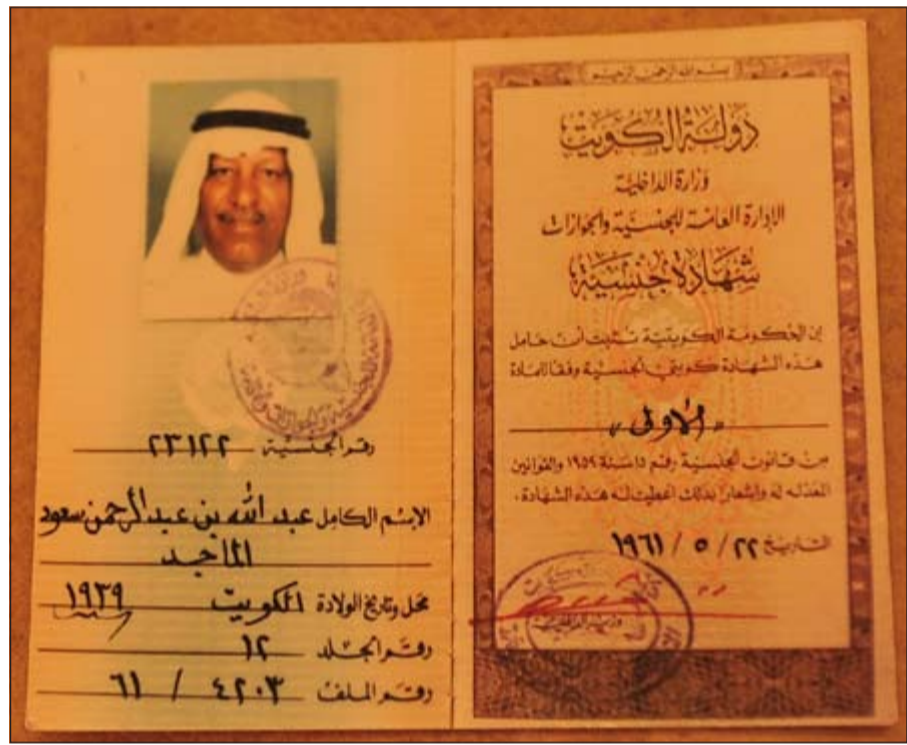 بسم الله الرحمن الرحيم
دولة الكويت
وزارة الداخلية
الإدارة العامة للجنسية والجوازات
شهادة جنسية
إن الحكومة الكويتية تثبت أن حامل
هذه الشهادة كويتي الجنسية وفقا للمادة
" الأولى "
من قانون الجنسية رقم ١٥ لسنة ١٩٥٩ والقوانين
المعدلة له وإشعارا بذلك أعطيت له هذه الشهادة .
التاريخ ٢٢ / ٥ / ١٩٦١
وزير الداخلية
رقم الجنسية ٢٣١٢٢
الإسم الكامل عبد الله بن عبد الرحمن سعود
الماجد
محل وتاريخ الولادة الكويت سنة ١٩٣٩
رقم الجلد ١٢
رقم الملف ٤٢٠٣ / ٦١